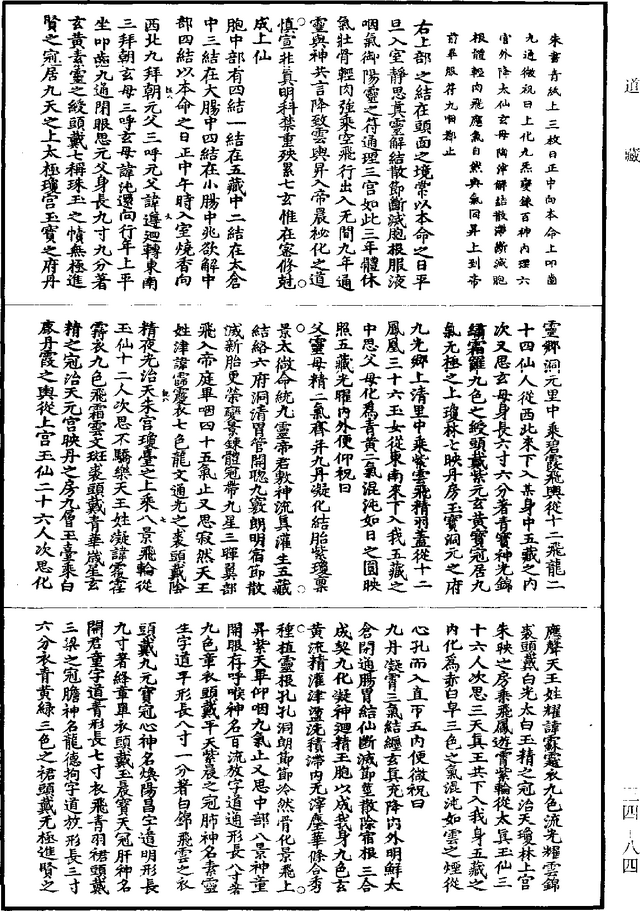 道藏
三四—八四
朱書青紙上三枚日正中向本命上叩齒
九通微祝曰上化九炁變鍊百神內理六
宮外降太仙玄母陶津解結散滯斷滅胞
根體輕肉飛應氣自然與氣同昇上到帝
前畢服符九咽都止
右上部之結在頭面之境常以本命之日平
旦入室靜思真靈解結散節斷滅胞根服液
咽氣御陽靈之符通理三宮如此三年體休
氣壯骨輕肉強乘空飛行出入无間九年通
靈與神共言降致雲輿昇入帝晨祕化之道
慎宣非真明科禁重殃累七玄惟在密修尅
成上仙
胞中部有四結一結在五藏中二結在太倉
中三結在大腸中四結在小腸中兆欲解中
部四結以本命之日正中午時入室燒香向
西北九拜朝元父三呼元父諱遵迴轉東南
三拜朝玄母三呼玄母諱沌還向行年上平
坐叩齒九通閉眼思元父身長九寸九分著
玄黃素靈之綬頭戴七稱珠玉之幘無極進
賢之冠居九天之上太極瓊宮玉寶之府丹
靈鄉洞元里中乘碧霞飛輿從十二飛龍二
十四仙人從西北來下入某身中五藏之內
次又思玄母身長六寸六分著青寶神光錦
繡霜羅九色之綬頭戴紫元玄黃寶冠居九
氣无極之上瓊林七映丹房玉寶洞元之府
九光鄉上清里中乘紫雲飛精羽蓋從十二
鳳凰三十六玉女從東南來下入我五藏之
中思父母化為青黃二氣混沌如日之圓映
照五藏光曜內外便仰祝曰
父靈母精二氣齊并九丹凝化結胎紫瓊稟
景太微命統九靈帝君敷神流真灌生五藏
結絡六府洞清胃管開聰九竅朗明宿節散
滅新胎更榮變景鍊體冠帶九星三暉翼部
飛入帝庭畢咽四十五氣止又思寂然天王
姓津諱霐靈衣七色龍文通光之裘頭戴陰
精夜光治天朱宮瓊臺之上乘八景飛輪從
玉仙十二人次思不驕樂天王姓凝諱霐霍
霧衣九色飛霜雲文斑裘頭戴青華歲星玄
精之冠治天元宮映丹之房九層玉臺乘白
鹿丹霞之輿從上宮玉仙二十六人次思化
應聲天王姓耀諱霧靈衣九色流光耀雲錦
裘頭戴白光太白玉精之冠治天瓊林上宮
朱映之房乘飛鳳遊霄紫輪從太真玉仙三
十六人次思三天真王共下入我身五藏之
內化為赤白阜三色之氣混沌如雲之煙從
心孔而入直帀五內便微祝曰
九丹凝霄三氣結纏玄真充降內外明鮮太
倉開通腸胃結仙斷滅節莖散除宿根三合
成契九化凝神迴精玉胞以成我身九色玄
黃流精灌津盪洗積滯內无滓塵華條合秀
種植靈根孔孔洞朗節節泠然骨化景飛上
昇紫天畢仰咽九氣止又思中部八景神童
開眼存呼喉神名百流放字道通形長八寸著
九色章衣頭戴平天紫晨之冠肺神名素靈
生字道平形長八寸一分著白錦飛雲之衣
頭戴九元寶冠心神名煥陽昌字道明形長
九寸著絳章單衣頭戴玉晨寶天冠肝神名
開君童字道青形長七寸衣飛青羽裙頭戴
三梁之冠膽神名龍德拘字道放形長三寸
六分衣青黃綠三色之裙頭戴无極進賢之